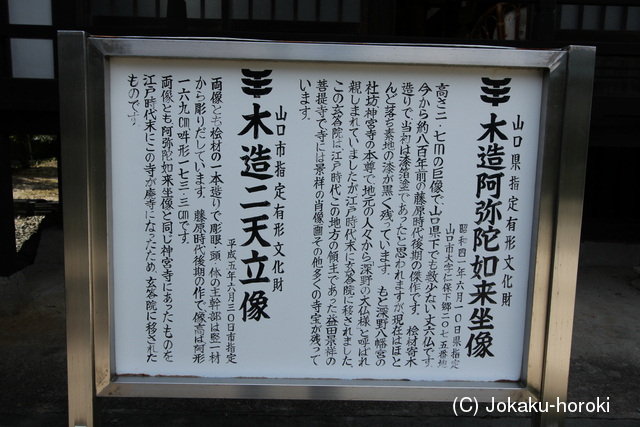 山口県指定有形文化財
木造阿弥陀如来坐像
昭和四一年六月一〇日県指定
山口市大字仁保下郷二〇七五番地
高さ二・七mの巨像で、山口県下でも数少ない丈六仏です。
今から約八百年前の藤原時代後期の傑作です。桧材寄木
造りで、当初は漆箔塗であったと思われますが、現在はほと
んど落ち素地の漆が黒く残っています。もと深野八幡宮の
社坊神宮寺の本尊で、地元の人々から「深野の大仏様」と呼ばれ
親しまれていましたが、江戸時代末に玄答院に移されました。
この玄答院は、江戸時代この地方の領主であった益田景祥の
菩提寺で、寺には景祥の肖像画その他多くの寺宝が残って
います。
山口市指定有形文化財
木造二天立像
平成五年六月三〇日市指定
両像とも桧材の一本造りで彫眼、頭、体の主幹部は竪一材
から彫りだしています。藤原時代後期の作で、像高は阿形
一六九cm、吽形一七三・三cmです。
両像とも阿弥陀如来坐像と同じ神宮寺にあったものを
江戸時代末にこの寺が廃寺になったため、玄答院に移された
ものです。
(C) Jokaku-horoki